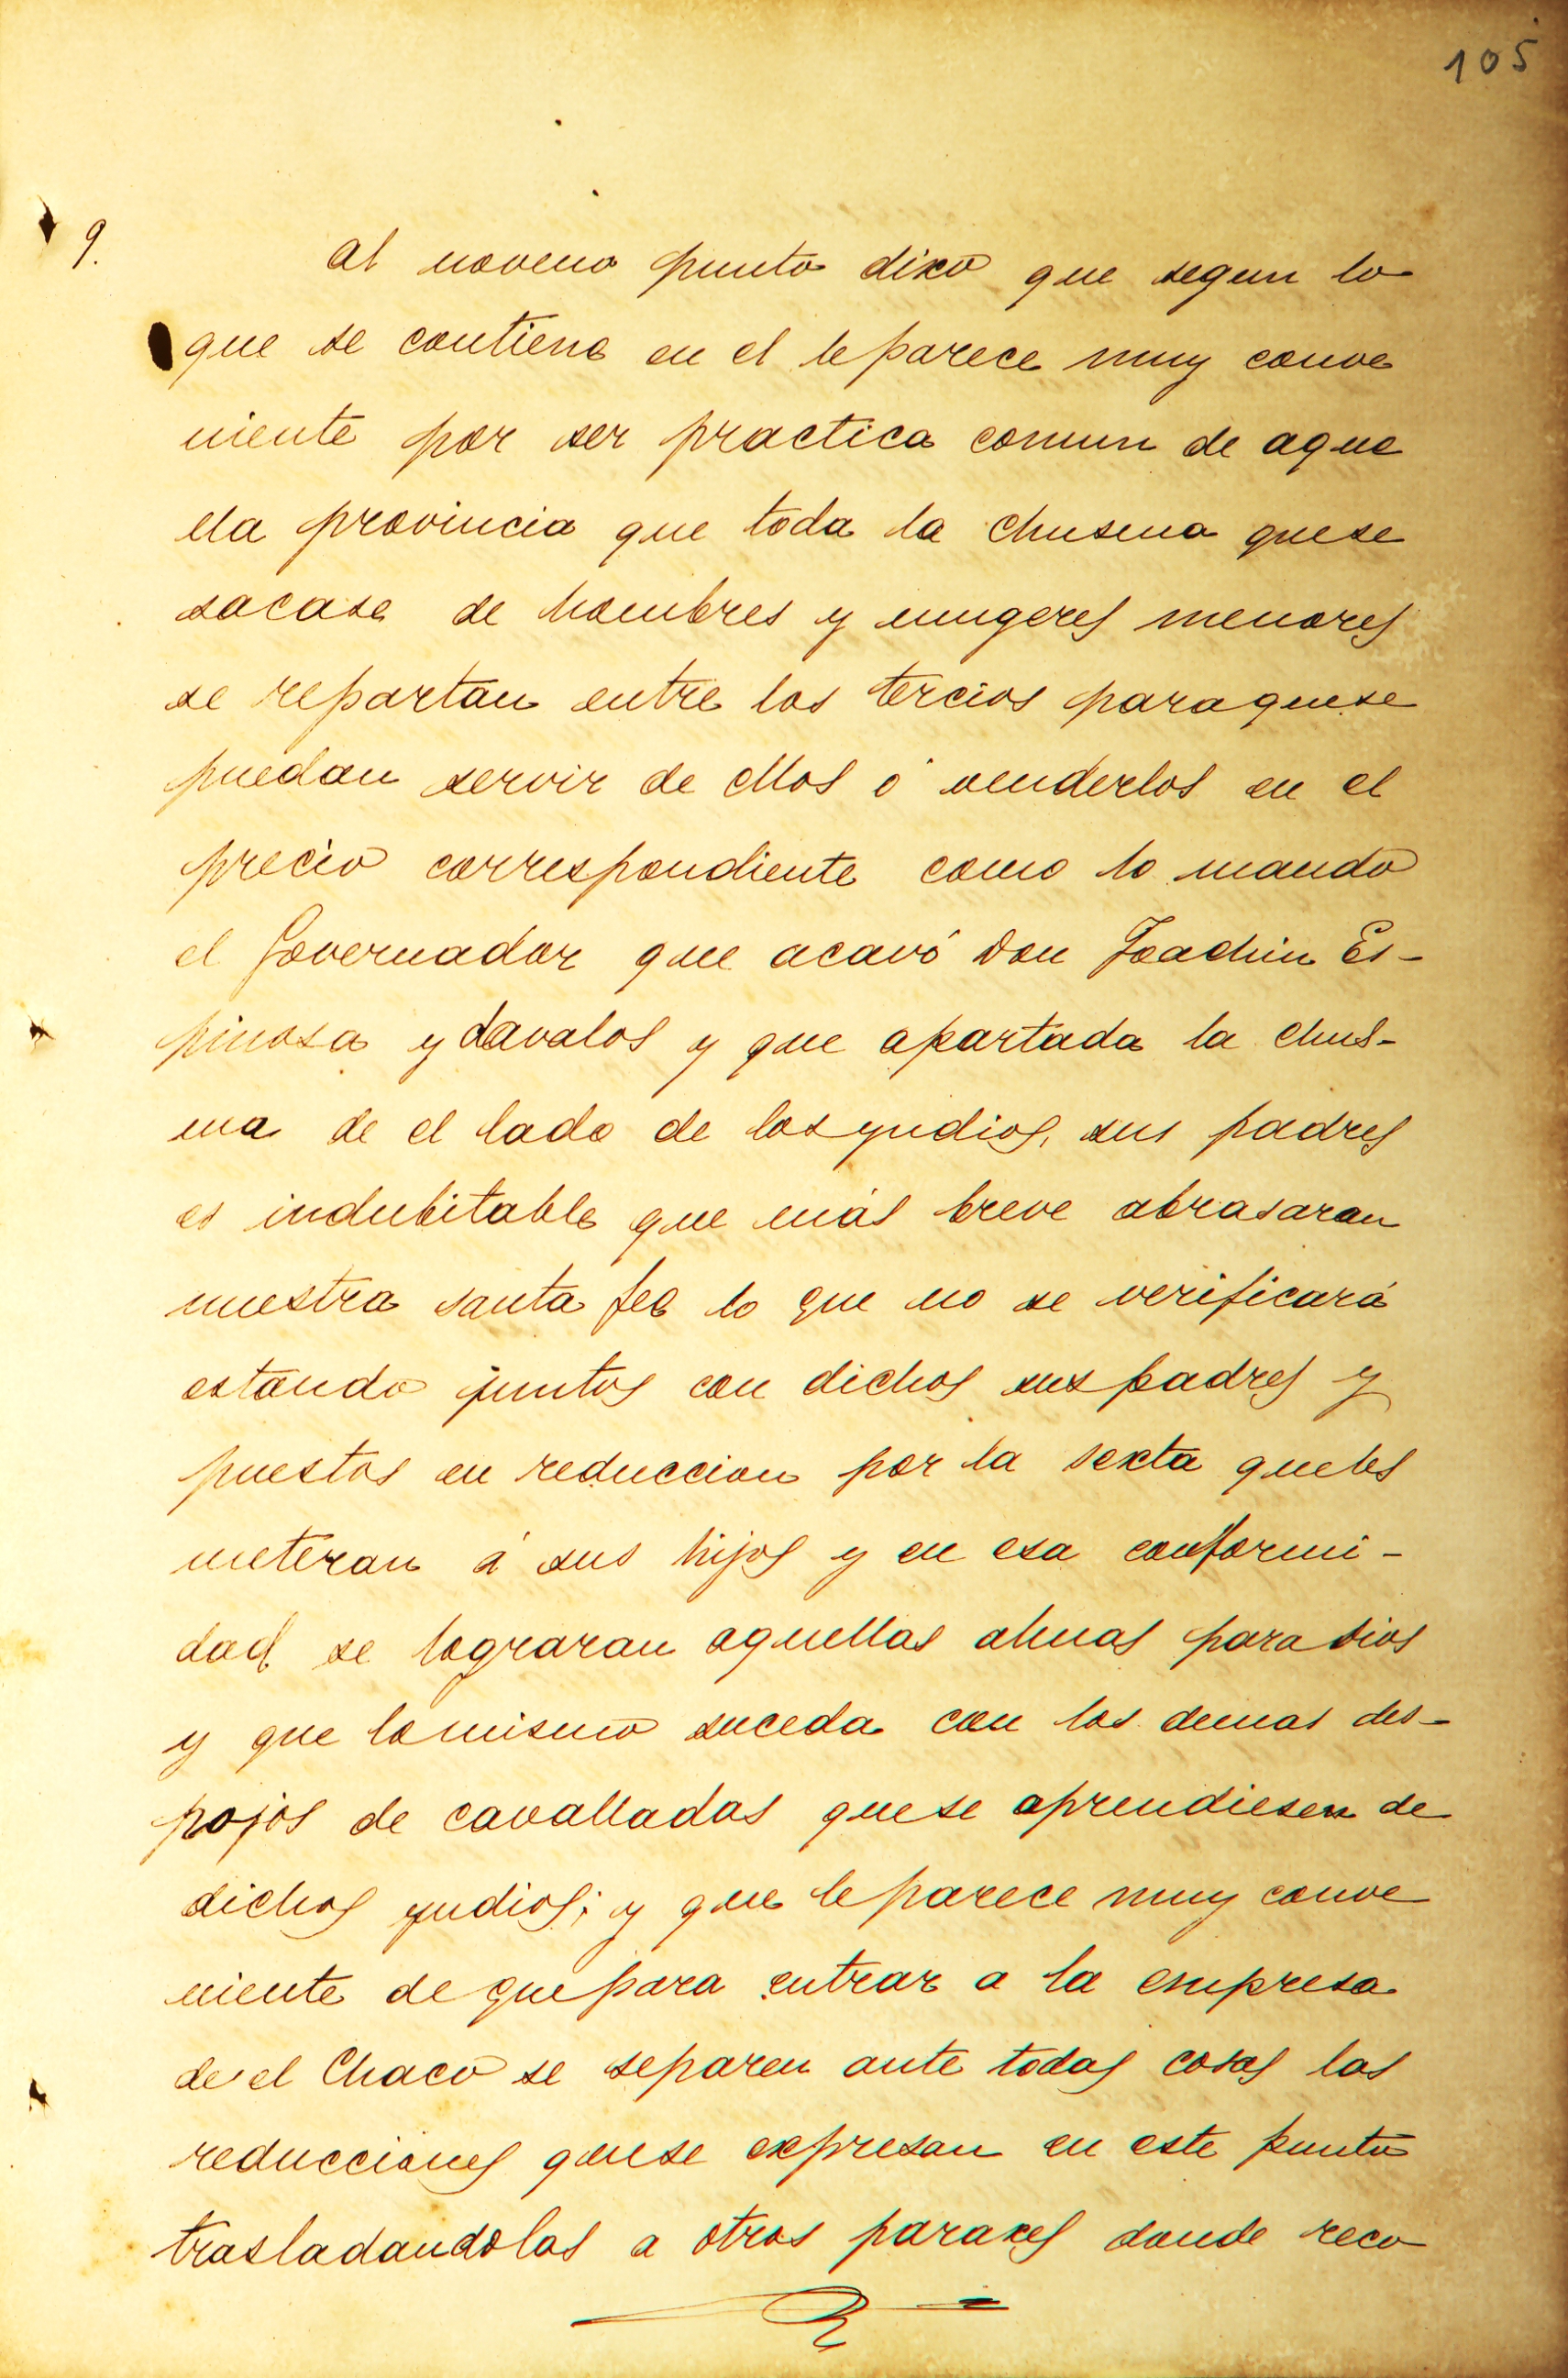 105
9. Al noveno punto dixo que segun lo
que se contiene en el le parece muy conve
niente por ser practica comun de aque
lla provincia que toda la chusma quese
sacase de hombres y mugeres menores
se repartan entre los tercios paraquese
puedan servir de ellos ó venderlos en el
precio correspondiente como lo mando
el Governador que acavó Don Joachin Es-
pinosa y davalos y que apartada la chus-
ma de el lado de los yndios, sus padres
es indubitable que más breve abrasaran
nuestra santa fee lo que no se verificará
estando juntos con dichos sus padres y
puestos en reduccion por la sexta queles
meteran á sus hijos y en esa conformi-
dad se lograran aquellas almas para dios
y que lo mismo suceda con los demas des-
pojos de cavalladas quese aprendiesen de
dichos yndios; y que le parece muy conve
niente de que para entrar a la empresa
de el Chaco se separen ante todas cosas las
reducciones quese expresan en este punto
trasladandolas a otros paraxes donde reco